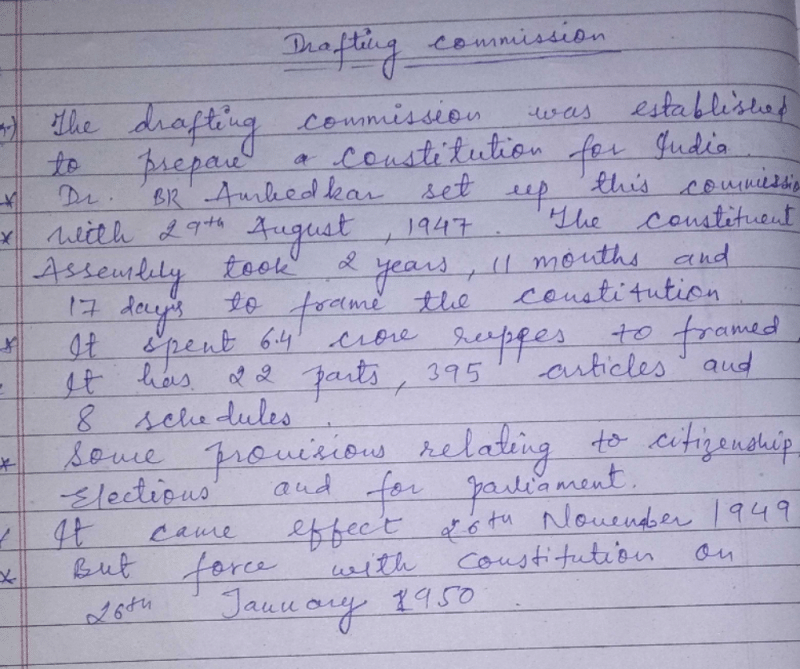 Drafting commission
The drafting commission was established
to prepare a constitution for India.
* Dr. BR Ambedkar set up this commissio
* with 29th August, 1947. The constituent
Assembly took 2 years, 11 months and
17 days to frame the constitution.
* It spent 6.4 crore ruppes to framed
It has 22 parts, 395 articles and
8 schedules.
* Some provisions relating to citizenship
Elections and for parliament.
It came effect 26th November 1949
* But force with constitution on
26th January 1950.